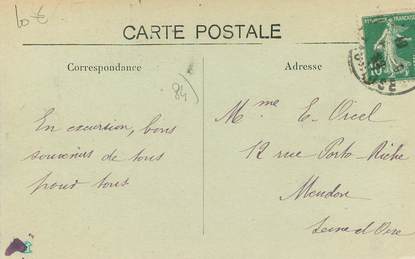 CARTE POSTALE
Correspondance
Adresse
84
En excursion, bons
souvenirs de tous
pour tous
Mme E. Orcel
12 rue Porto-Riche
Meudon
Seine et Oise
10